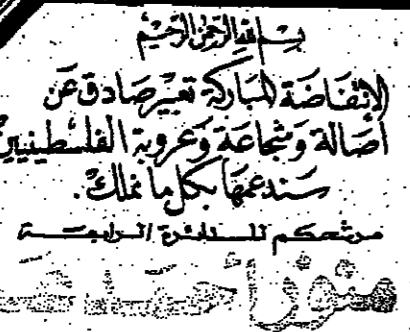 بسم الله الرحمن الرحيم
الإنتفاضة المباركة تعبير صادق عن
أصالة وشجاعة وعروبة الفلسطينيين
سندعمها بكل ما نملك.
مرشحكم للدائرة الرابعة
منور أحمد